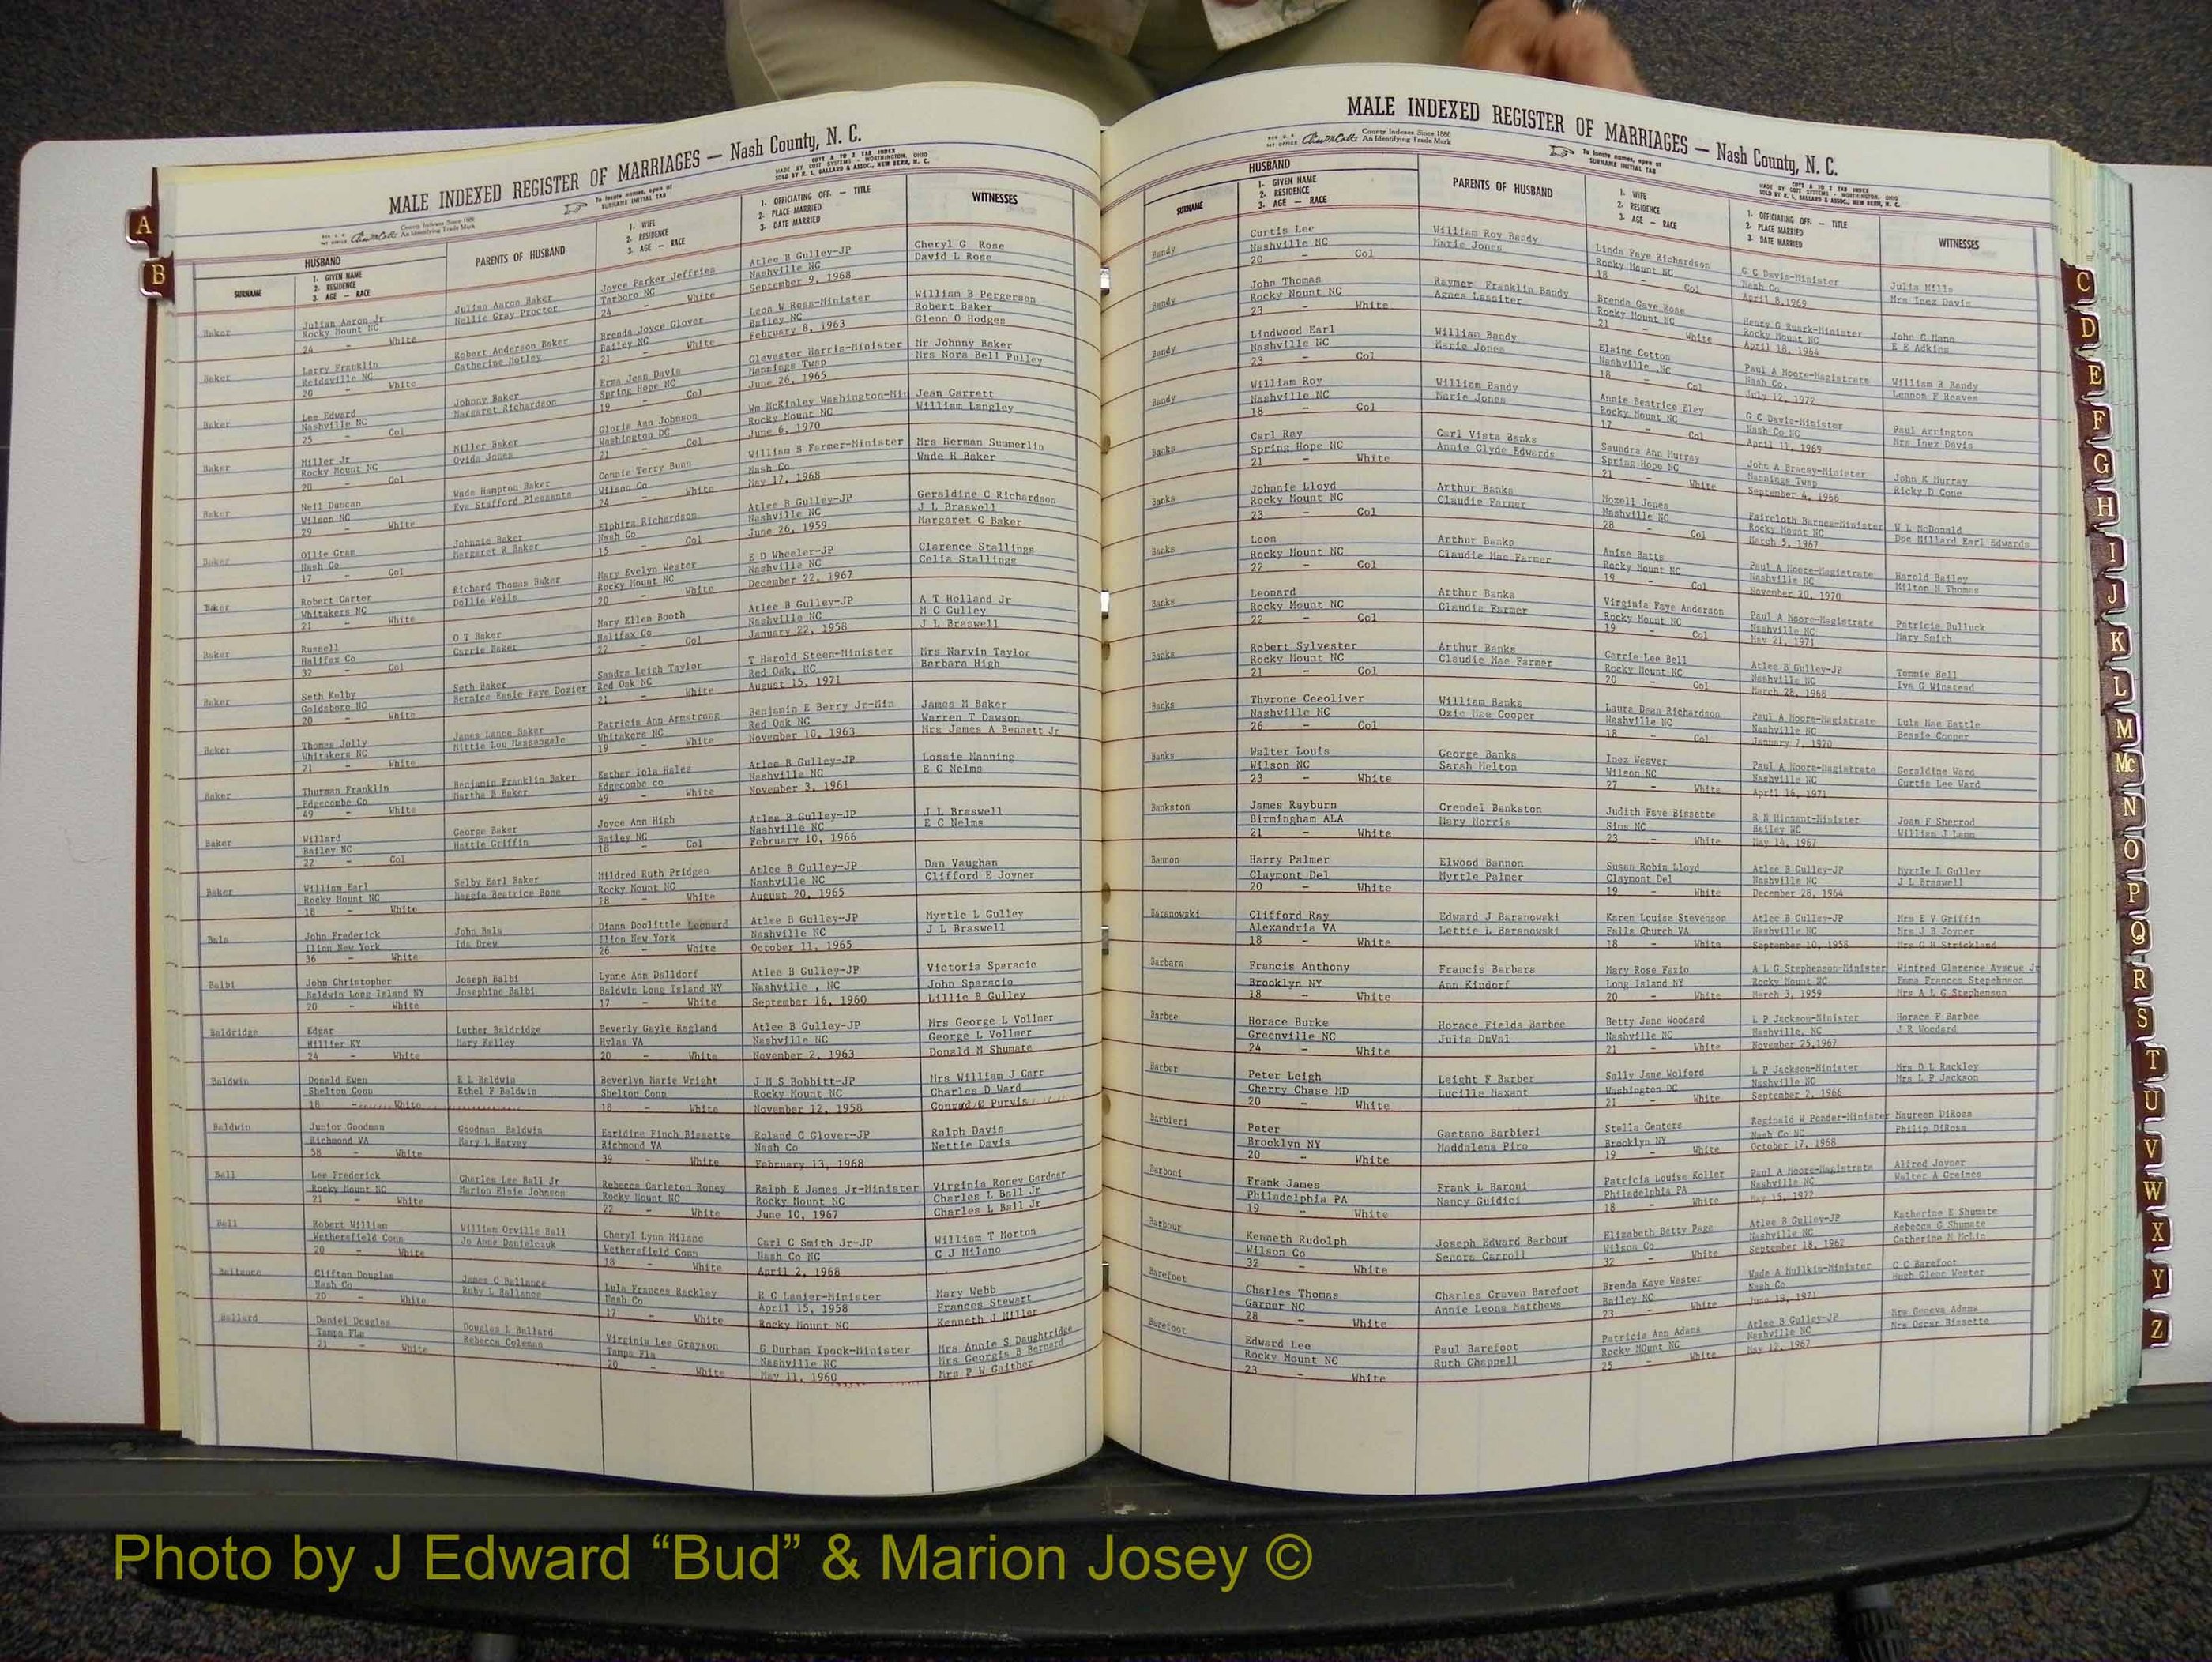 MALE INDEXED REGISTER OF MARRIAGES — Nash County, N. C.
County Indexes Since 1888
An Identifying Trade Mark
To locate names, open at
SURNAME INITIAL TAB
COTT A TO Z TAB INDEX
MADE BY COTT SYSTEMS - WORTHINGTON, OHIO
SOLD BY R. L. BALLARD & ASSOC., NEW BERN, N. C.
HUSBAND
SURNAME
1. GIVEN NAME
2. RESIDENCE
3. AGE — RACE
PARENTS OF HUSBAND
1. WIFE
2. RESIDENCE
3. AGE — RACE
1. OFFICIATING OFF. — TITLE
2. PLACE MARRIED
3. DATE MARRIED
WITNESSES
Baker Julian Aaron Jr Julian Aaron Baker Joyce Parker Jeffries Atlee B Gulley-JP Cheryl G Rose
Rocky Mount NC Nellie Gray Proctor Tarboro NC Nashville NC David L Rose
24 - White 24 - White September 9, 1968
Baker Larry Franklin Robert Anderson Baker Brenda Joyce Glover Leon W Ross-Minister William B Pergerson
Reidsville NC Catherine Motley Bailey NC Bailey NC Robert Baker
20 - White 21 - White February 8, 1963 Glenn O Hodges
Baker Lee Edward Johnny Baker Erma Jean Davis Clevester Harris-Minister Mr Johnny Baker
Nashville NC Margaret Richardson Spring Hope NC Mannings Twsp Mrs Nora Bell Pulley
25 - Col 19 - Col June 26, 1965
Baker Miller Jr Miller Baker Gloria Ann Johnson Wm McKinley Washington-Min Jean Garrett
Rocky Mount NC Ovida Jones Washington DC Rocky Mount NC William Langley
20 - Col 21 - Col June 6, 1970
Baker Neil Duncan Wade Hampton Baker Connie Terry Bunn William B Farmer-Minister Mrs Herman Summerlin
Wilson NC Eva Stafford Pleasants Wilson Co Nash Co Wade H Baker
29 - White 24 - White May 17, 1968
Baker Ollie Gram Johnnie Baker Elphira Richardson Atlee B Gulley-JP Geraldine C Richardson
Nash Co Margaret R Baker Nash Co Nashville NC J L Braswell
17 - Col 15 - Col June 26, 1959 Margaret C Baker
Baker Robert Carter Richard Thomas Baker Mary Evelyn Wester E D Wheeler-JP Clarence Stallings
Whitakers NC Dollie Wells Rocky Mount NC Nashville NC Celia Stallings
21 - White 20 - White December 22, 1967
Baker Russell O T Baker Mary Ellen Booth Atlee B Gulley-JP A T Holland Jr
Halifax Co Carrie Baker Halifax Co Nashville NC M C Gulley
32 - Col 22 - Col January 22, 1958 J L Braswell
Baker Seth Kolby Seth Baker Sandra Leigh Taylor T Harold Steen-Minister Mrs Narvin Taylor
Goldsboro NC Bernice Essie Faye Dozier Red Oak NC Red Oak, NC Barbara High
20 - White 21 - White August 15, 1971
Baker Thomas Jolly James Lance Baker Patricia Ann Armstrong Benjamin E Berry Jr-Min James M Baker
Whitakers NC Mittie Lou Massengale Whitakers NC Red Oak NC Warren T Dawson
21 - White 19 - White November 10, 1963 Mrs James A Bennett Jr
Baker Thurman Franklin Benjamin Franklin Baker Esther Iola Hales Atlee B Gulley-JP Lossie Manning
Edgecombe Co Martha B Baker Edgecombe co Nashville NC E C Nelms
49 - White 49 - White November 3, 1961
Baker Willard George Baker Joyce Ann High Atlee B Gulley-JP J L Braswell
Bailey NC Hattie Griffin Bailey NC Nashville NC E C Nelms
22 - Col 18 - Col February 10, 1966
Baker William Earl Selby Earl Baker Mildred Ruth Pridgen Atlee B Gulley-JP Dan Vaughan
Rocky Mount NC Maggie Beatrice Bone Rocky Mount NC Nashville NC Clifford E Joyner
18 - White 18 - White August 20, 1965
Bala John Frederick John Bala Diann Doolittle Leonard Atlee B Gulley-JP Myrtle L Gulley
Ilion New York Ida Drew Ilion New York Nashville NC J L Braswell
36 - White 26 - White October 11, 1965
Balbi John Christopher Joseph Balbi Lynne Ann Dalldorf Atlee B Gulley-JP Victoria Sparacio
Baldwin Long Island NY Josephine Balbi Baldwin Long Island NY Nashville , NC John Sparacio
20 - White 17 - White September 16, 1960 Lillie B Gulley
Baldridge Edgar Luther Baldridge Beverly Gayle Ragland Atlee B Gulley-JP Mrs George L Vollner
Hillier KY Mary Kelley Hylas VA Nashville NC George L Vollner
24 - White 20 - White November 2, 1963 Donald M Shumate
Baldwin Donald Ewen E L Baldwin Beverlyn Marie Wright J M S Bobbitt-JP Mrs William J Carr
Shelton Conn Ethel F Baldwin Shelton Conn Rocky Mount NC Charles D Ward
18 - White 18 - White November 12, 1958 Conrad C Purvis
Baldwin Junior Goodman Goodman Baldwin Earldine Finch Bissette Roland C Glover-JP Ralph Davis
Richmond VA Mary L Harvey Richmond VA Nash Co Nettie Davis
58 - White 39 - White February 13, 1968
Ball Lee Frederick Charles Lee Ball Jr Rebecca Carleton Roney Ralph E James Jr-Minister Virginia Roney Gardner
Rocky Mount NC Marion Elsie Johnson Rocky Mount NC Rocky Mount NC Charles L Ball Jr
21 - White 22 - White June 10, 1967 Charles L Ball Jr
Ball Robert William William Orville Ball Cheryl Lynn Milano Carl C Smith Jr-JP William T Morton
Wethersfield Conn Jo Anne Danielczuk Wethersfield Conn Nash Co NC C J Milano
20 - White 18 - White April 2, 1968
Ballance Clifton Douglas James C Ballance Lula Frances Rackley R C Lanier-Minister Mary Webb
Nash Co Ruby L Ballance Nash Co April 15, 1958 Frances Stewart
20 - White 17 - White Rocky Mount NC Kenneth J Miller
Ballard Daniel Douglas Douglas L Ballard Virginia Lee Grayson G Durham Ipock-Minister Mrs Annie S Daughtridge
Tampa Fla Rebecca Coleman Tampa Fla Nashville NC Mrs Georgia B Bernard
21 - White 20 - White May 11, 1960 Mrs P W Gaither
MALE INDEXED REGISTER OF MARRIAGES — Nash County, N. C.
County Indexes Since 1888
An Identifying Trade Mark
To locate names, open at
SURNAME INITIAL TAB
COTT A TO Z TAB INDEX
MADE BY COTT SYSTEMS - WORTHINGTON, OHIO
SOLD BY R. L. BALLARD & ASSOC., NEW BERN, N. C.
HUSBAND
SURNAME
1. GIVEN NAME
2. RESIDENCE
3. AGE — RACE
PARENTS OF HUSBAND
1. WIFE
2. RESIDENCE
3. AGE — RACE
1. OFFICIATING OFF. — TITLE
2. PLACE MARRIED
3. DATE MARRIED
WITNESSES
Bandy Curtis Lee William Roy Bandy Linda Faye Richardson G C Davis-Minister Julia Mills
Nashville NC Marie Jones Rocky Mount NC Nash Co Mrs Inez Davis
20 - Col 18 - Col April 8,1969
Bandy John Thomas Raymer Franklin Bandy Brenda Gaye Rose Henry G Ruark-Minister John C Mann
Rocky Mount NC Agnes Lassiter Rocky Mount NC Rocky Mount NC E E Adkins
23 - White 21 - White April 18, 1964
Bandy Lindwood Earl William Bandy Elaine Cotton Paul A Moore-Magistrate William R Bandy
Nashville NC Marie Jones Nashville ,NC Nash Co. Lennon F Reaves
23 - Col 18 - Col July 12, 1972
Bandy William Roy William Bandy Annie Beatrice Eley G C Davis-Minister Paul Arrington
Nashville NC Marie Jones Rocky Mount NC Nash Co NC Mrs Inez Davis
18 - Col 17 - Col April 11, 1969
Banks Carl Ray Carl Vista Banks Saundra Ann Murray John A Bracey-Minister John K Murray
Spring Hope NC Annie Clyde Edwards Spring Hope NC Mannings Twsp Ricky D Cone
21 - White 21 - White September 4, 1966
Banks Johnnie Lloyd Arthur Banks Mozell Jones Faircloth Barnes-Minister W L McDonald
Rocky Mount NC Claudie Farmer Nashville NC Rocky Mount NC Doc Millard Earl Edwards
23 - Col 28 - Col March 5, 1967
Banks Leon Arthur Banks Anise Batts Paul A Moore-Magistrate Harold Bailey
Rocky Mount NC Claudie Mae Farmer Rocky Mount NC Nashville NC Milton H Thomas
22 - Col 19 - Col November 20, 1970
Banks Leonard Arthur Banks Virginia Faye Anderson Paul A Moore-Magistrate Patricia Bulluck
Rocky Mount NC Claudie Farmer Rocky Mount NC Nashville NC Mary Smith
22 - Col 19 - Col May 21, 1971
Banks Robert Sylvester Arthur Banks Carrie Lee Bell Atlee B Gulley-JP Tommie Bell
Rocky Mount NC Claudie Mae Farmer Rocky Mount NC Nashville NC Iva G Winstead
21 - Col 20 - Col March 28, 1968
Banks Thyrone Ceeoliver William Banks Laura Dean Richardson Paul A Moore-Magistrate Lula Mae Battle
Nashville NC Ozie Mae Cooper Nashville NC Nashville NC Bessie Cooper
26 - Col 18 - Col January 7, 1970
Banks Walter Louis George Banks Inez Weaver Paul A Moore-Magistrate Geraldine Ward
Wilson NC Sarah Melton Wilson NC Nashville NC Curtis Lee Ward
23 - White 27 - White April 16, 1971
Bankston James Rayburn Grendel Bankston Judith Faye Bissette R N Hinnant-Minister Joan F Sherrod
Birmingham ALA Mary Norris Sims NC Bailey NC William J Lamm
21 - White 23 - White May 14, 1967
Bannon Harry Palmer Elwood Bannon Susan Robin Lloyd Atlee B Gulley-JP Myrtle L Gulley
Claymont Del Myrtle Palmer Claymont Del Nashville NC J L Braswell
20 - White 19 - White December 28, 1964
Baranowski Clifford Ray Edward J Baranowski Karen Louise Stevenson Atlee B Gulley-JP Mrs E V Griffin
Alexandria VA Lettie L Baranowski Falls Church VA Nashville NC Mrs J B Joyner
18 - White 18 - White September 10, 1958 Mrs G H Strickland
Barbara Francis Anthony Francis Barbara Mary Rose Fazio A L G Stephenson-Minister Winfred Clarence Ayscue Jr
Brooklyn NY Ann Kindorf Long Island NY Rocky Mount NC Emma Frances Stepehnson
18 - White 20 - White March 3, 1959 Mrs A L G Stephenson
Barbee Horace Burke Horace Fields Barbee Betty Jane Woodard L P Jackson-Minister Horace F Barbee
Greenville NC Julia DuVal Nashville NC Nashville, NC J R Woodard
24 - White 21 - White November 25,1967
Barber Peter Leigh Leight F Barber Sally Jane Wolford L P Jackson-Minister Mrs D L Rackley
Cherry Chase MD Lucille Maxant Washington DC Nashville NC Mrs L P Jackson
20 - White 21 - White September 2, 1966
Barbieri Peter Gaetano Barbieri Stella Centera Reginald W Ponder-Minister Maureen DiRoza
Brooklyn NY Maddalena Piro Brooklyn NY Nash Co NC Philip DiRosa
20 - White 19 - White October 17, 1968
Barboni Frank James Frank L Baroni Patricia Louise Koller Paul A Moore-Magistrate Alfred Joyner
Philadelphia PA Nancy Guidici Philadelphia PA Nashville NC Walter A Greines
19 - White 18 - White May 15, 1972
Barbour Kenneth Rudolph Joseph Edward Barbour Elizabeth Betty Page Atlee B Gulley-JP Katherine E Shumate
Wilson Co Senora Carroll Wilson Co Nashville NC Rebecca G Shumate
32 - White 32 - White September 18, 1962 Catherine M McLin
Barefoot Charles Thomas Charles Craven Barefoot Brenda Kaye Wester Wade A Mullkin-Minister C C Barefoot
Garner NC Annie Leona Matthews Bailey NC Nash Co Hugh Glenn Wester
28 - White 23 - White June 19, 1971
Barefoot Edward Lee Paul Barefoot Patricia Ann Adams Atlee B Gulley-JP Mrs Geneva Adams
Rocky Mount NC Ruth Chappell Rocky MOunt NC Nashville NC Mrs Oscar Bissette
23 - White 25 - White May 12, 1967
A
B
C
D
E
F
G
H
I
J
K
L
M
Mc
N
O
P
Q
R
S
T
U
V
W
X
Y
Z
Photo by J Edward “Bud” & Marion Josey ©